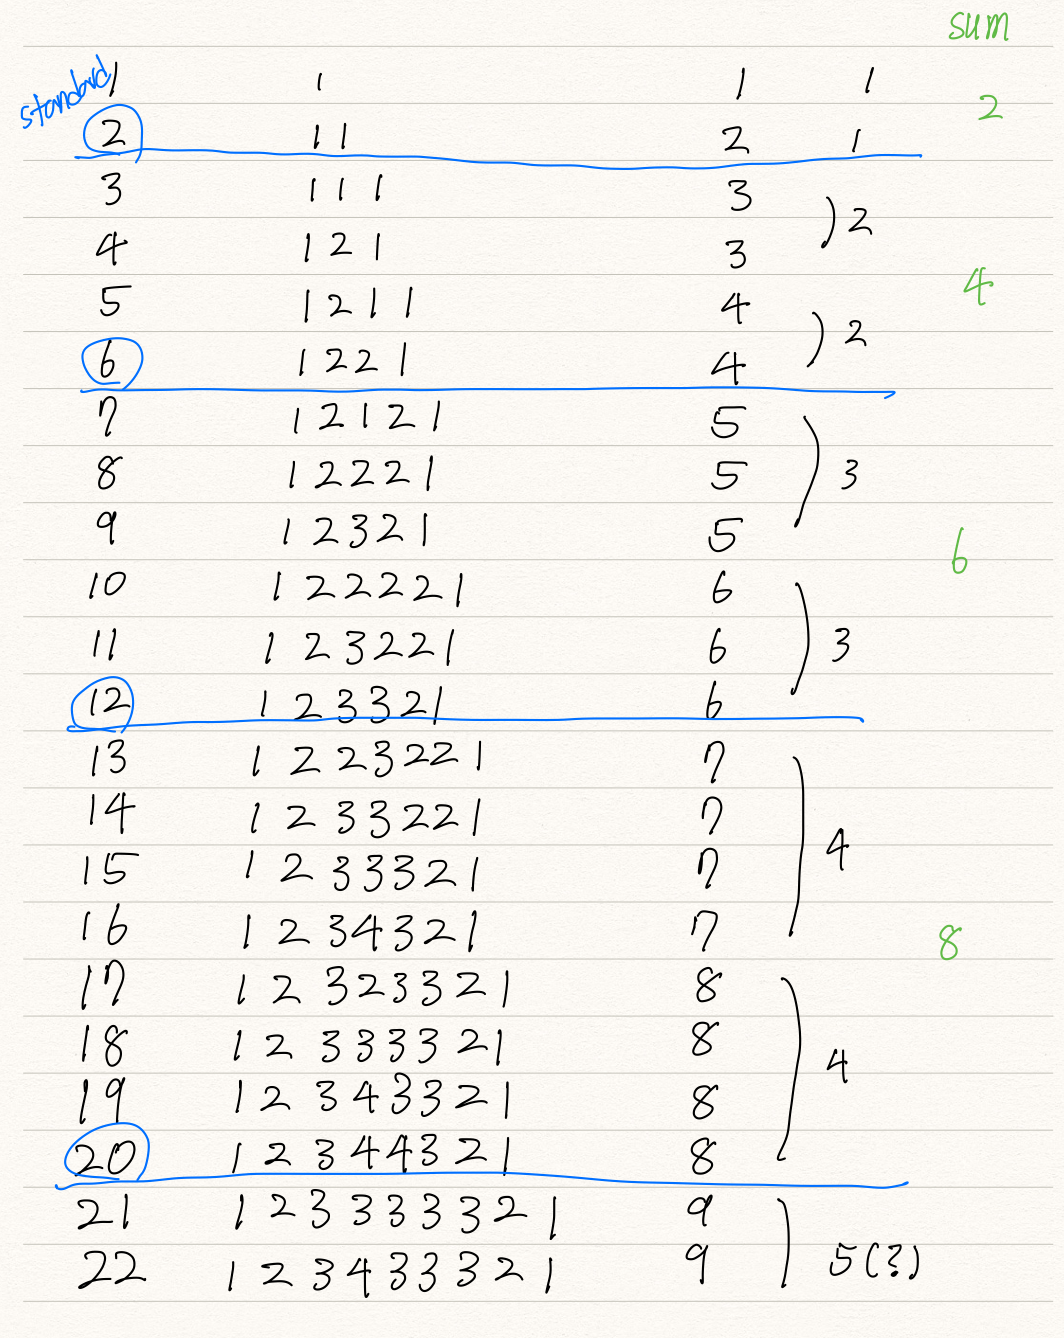 sum
standard
1 1 1 1
2 11 2 1 2
3 111 3
4 121 3 )2
5 1211 4 4
6 1221 4 )2
7 12121 5
8 12221 5 )3
9 12321 5 6
10 122221 6
11 123221 6 )3
12 123321 6
13 1223221 7
14 1233221 7
15 1233321 7 )4
16 1234321 7 8
17 12323321 8
18 1233321 8
19 12343321 8 )4
20 12344321 8
21 123333321 9
22 123433321 9 )5(?)